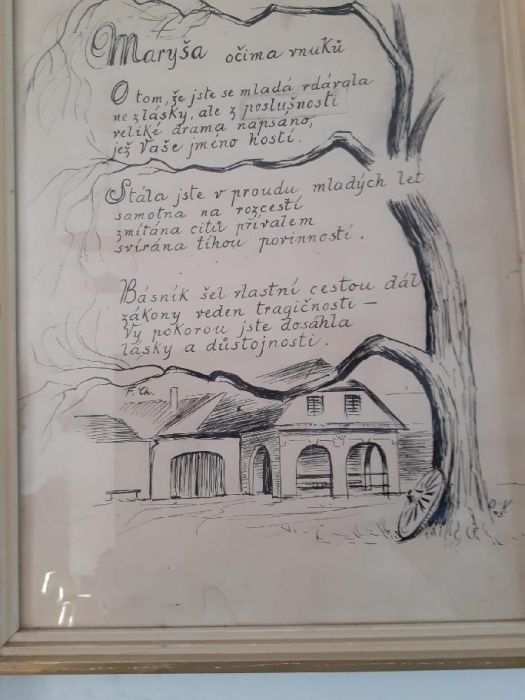 Maryša očima vnuků
O tom, že jste se mladá vdávala
ne z lásky, ale z poslušnosti
veliké drama napsáno,
jež Vaše jméno hostí.
Stála jste v proudu mladých let
samotna na rozcestí
zmítána citů přívalem
svírána tíhou povinností.
Básník šel vlastní cestou dál
zákony veden tragičnosti –
Vy pokorou jste dosáhla
lásky a důstojnosti.
F. Ch.